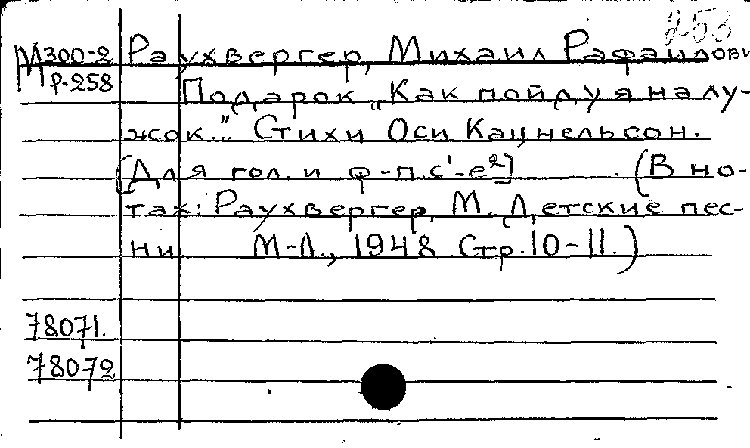 253
М300-2 Раухвергер, Михаил Рафаилови
Р-258 Подарок „Как пойду я на лу-
жок..." Стихи Оси Кацнельсон.
[Для гол. и ф-п. с¹-е²] (В но-
тах: Раухвергер, М. Детские пес-
ни М-Л., 1948 Стр. 10-11.)
78071.
78072